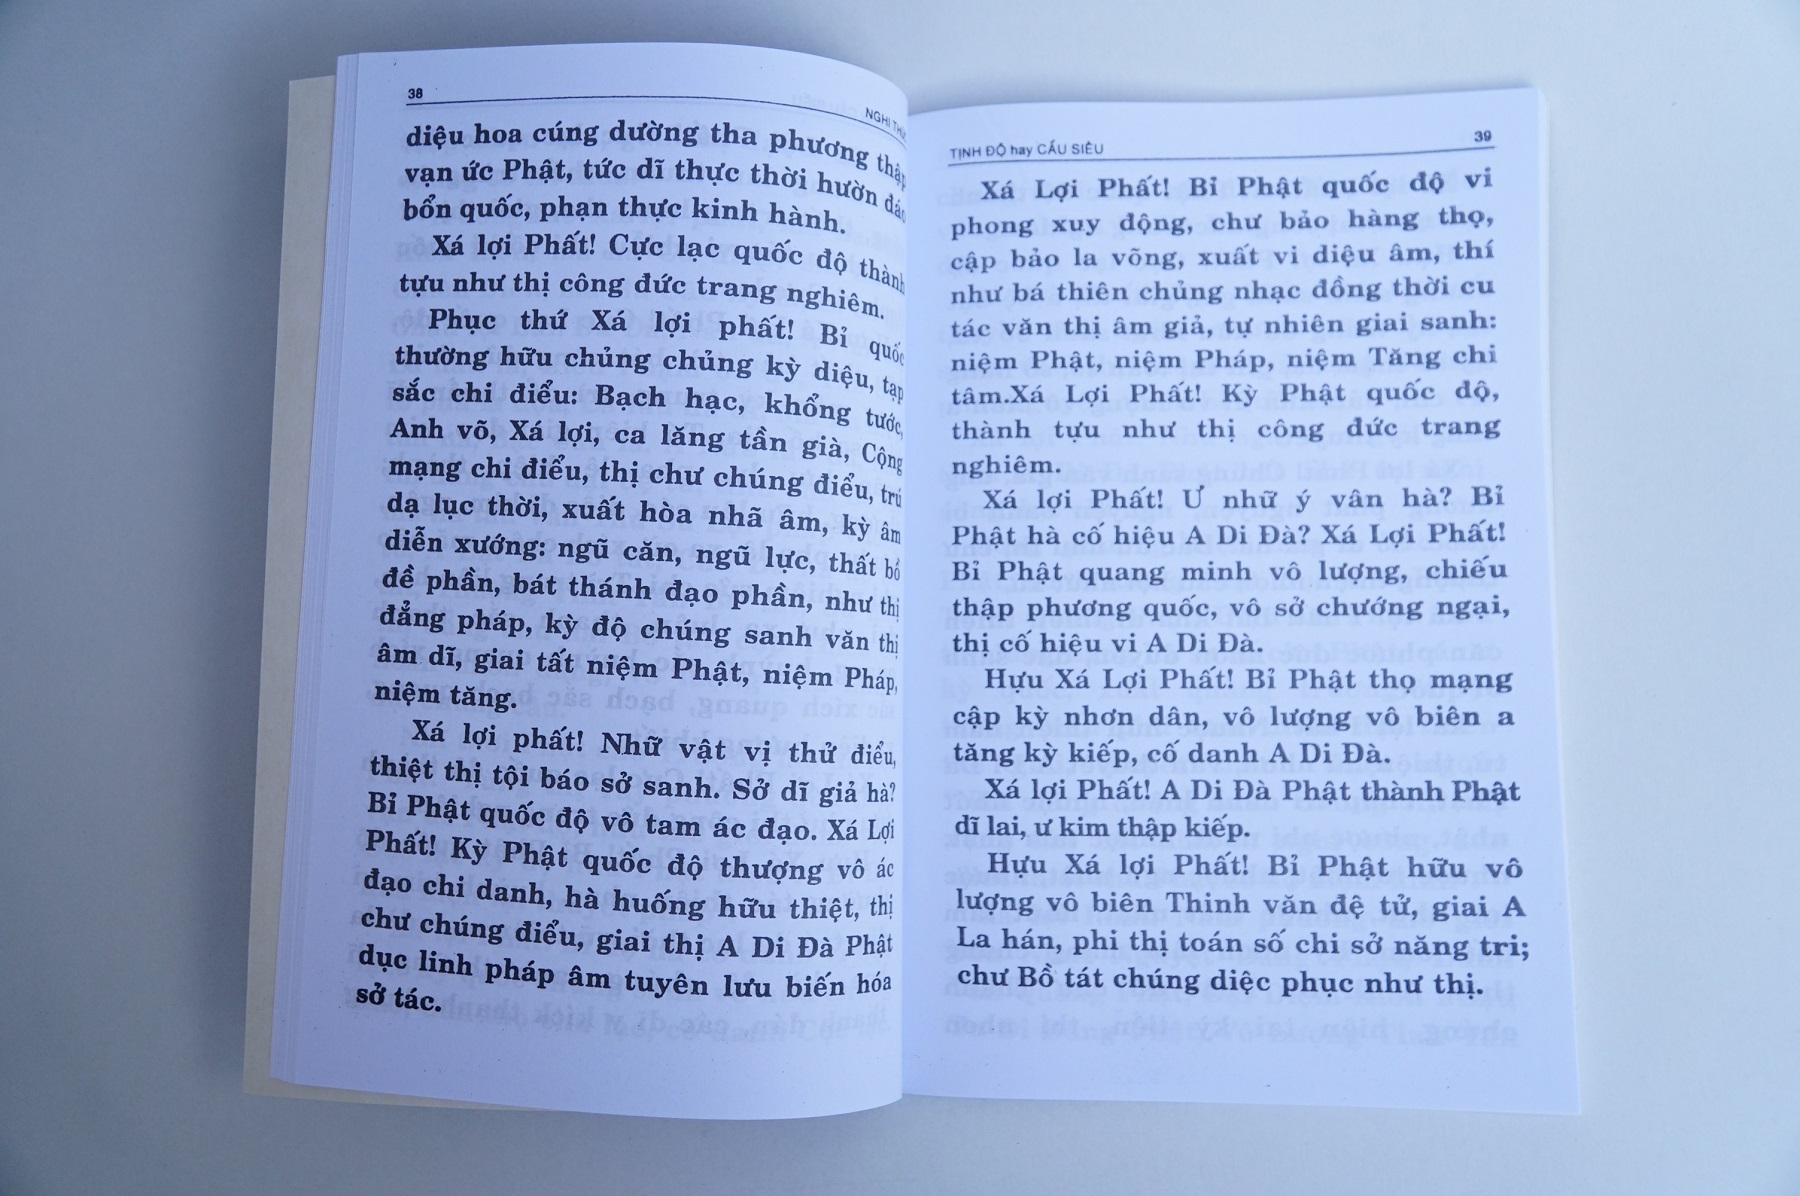 38
NGHI THỨC
diệu hoa cúng dường tha phương thập
vạn ức Phật, tức dĩ thực thời hườn đáo
bổn quốc, phạn thực kinh hành.
Xá lợi Phất! Cực lạc quốc độ thành
tựu như thị công đức trang nghiêm.
Phục thứ Xá lợi phất! Bỉ quốc
thường hữu chủng chủng kỳ diệu, tạp
sắc chi điểu: Bạch hạc, khổng tước,
Anh võ, Xá lợi, ca lăng tần già, Cộng
mạng chi điểu, thị chư chúng điểu, trú
dạ lục thời, xuất hòa nhã âm, kỳ âm
diễn xướng: ngũ căn, ngũ lực, thất bồ
đề phần, bát thánh đạo phần, như thị
đẳng pháp, kỳ độ chúng sanh văn thị
âm dĩ, giai tất niệm Phật, niệm Pháp,
niệm tăng.
Xá lợi phất! Nhữ vật vị thử điểu,
thiệt thị tội báo sở sanh. Sở dĩ giả hà?
Bỉ Phật quốc độ vô tam ác đạo. Xá Lợi
Phất! Kỳ Phật quốc độ thượng vô ác
đạo chi danh, hà huống hữu thiệt, thị
chư chúng điểu, giai thị A Di Đà Phật
dục linh pháp âm tuyên lưu biến hóa
sở tác.
TỊNH ĐỘ hay CẦU SIÊU
39
Xá Lợi Phất! Bỉ Phật quốc độ vi
phong xuy động, chư bảo hàng thọ,
cập bảo la võng, xuất vi diệu âm, thí
như bá thiên chủng nhạc đồng thời cu
tác văn thị âm giả, tự nhiên giai sanh:
niệm Phật, niệm Pháp, niệm Tăng chi
tâm.Xá Lợi Phất! Kỳ Phật quốc độ,
thành tựu như thị công đức trang
nghiêm.
Xá lợi Phất! Ư nhữ ý vân hà? Bỉ
Phật hà cố hiệu A Di Đà? Xá Lợi Phất!
Bỉ Phật quang minh vô lượng, chiếu
thập phương quốc, vô sở chướng ngại,
thị cố hiệu vi A Di Đà.
Hựu Xá Lợi Phất! Bỉ Phật thọ mạng
cập kỳ nhơn dân, vô lượng vô biên a
tăng kỳ kiếp, cố danh A Di Đà.
Xá lợi Phất! A Di Đà Phật thành Phật
dĩ lai, ư kim thập kiếp.
Hựu Xá lợi Phất! Bỉ Phật hữu vô
lượng vô biên Thinh văn đệ tử, giai A
La hán, phi thị toán số chi sở năng tri;
chư Bồ tát chúng diệc phục như thị.